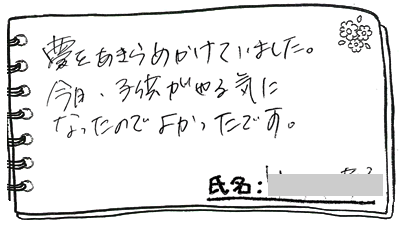 夢をあきらめかけていました。
今日、子供がやる気に
なったのでよかったです。
氏名: